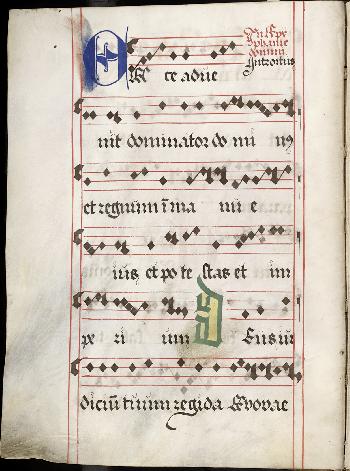 In festo epi
phanie
domini
Introitus
Ecce adue
nit dominator do mi nꝰ
et regnum ī ma nu e
ius et po te stas et im
pe ri um Deus iu
diciū tuum regi da Evovae